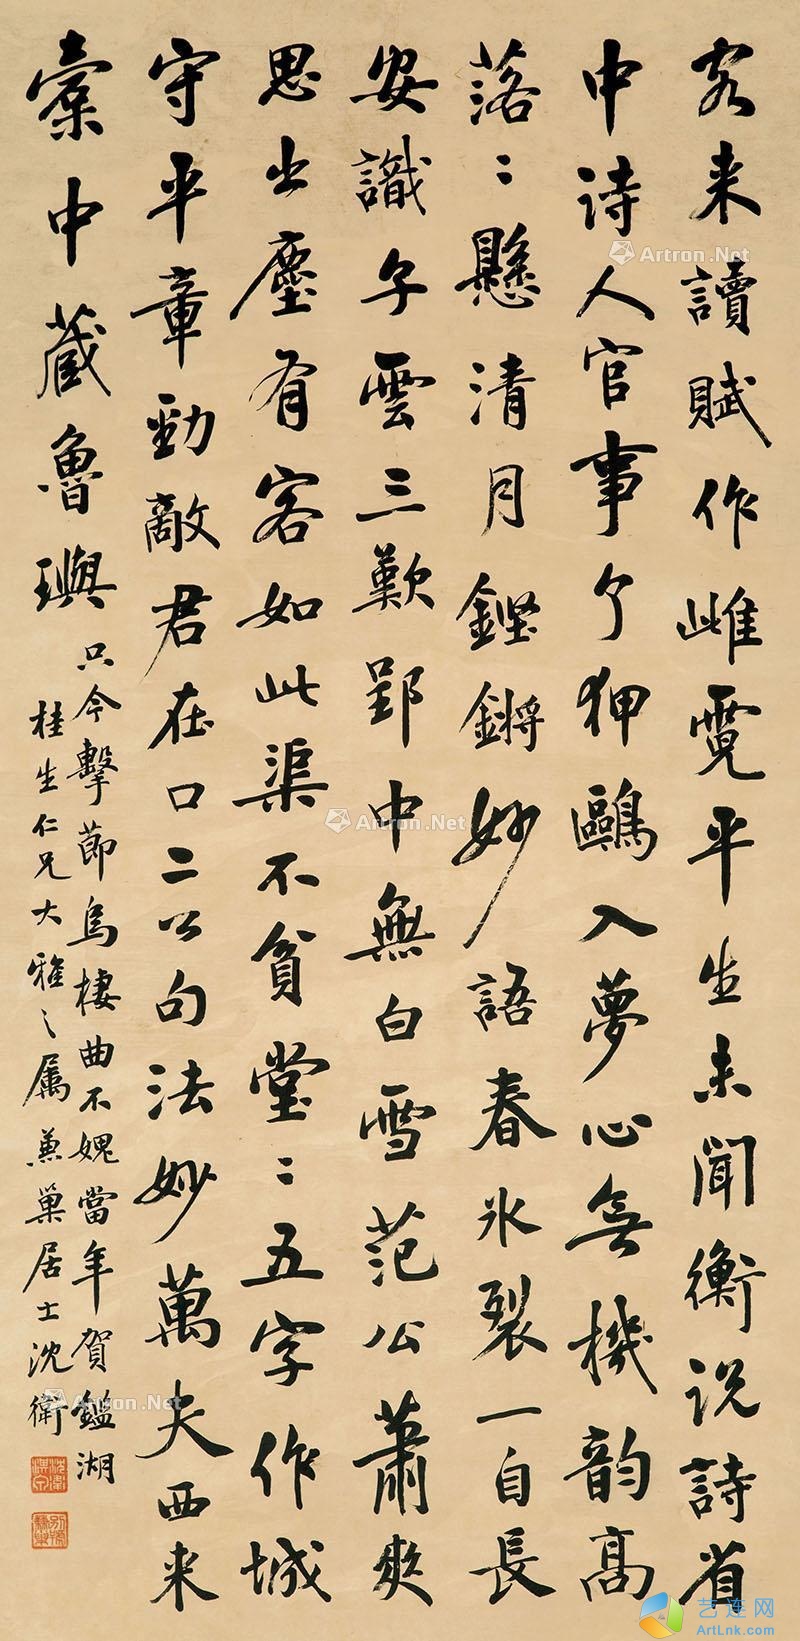 客来讀賦作雌霓平生未聞衡说詩省
中诗人官事了狎鷗入夢心無機韵高
落〻懸清月鏗鏘妙語春冰裂一自長
安識子雲三歎郢中無白雪范公蕭爽
思出塵有客如此渠不貧堂〻五字作城
守平章勁敵君在口二公句法妙萬夫西来
橐中藏魯璵
只今擊節烏棲曲不媿當年賀鑑湖
桂生仁兄大雅之属 兼巢居士沈衛
Artron.Net
Artron.Net
Artron.Net
Artron.Net
艺连网
ArtLnk.com